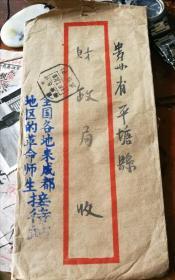 贵州省平塘縣
财政局收
全国各地来成都
地区的革命师生接待站